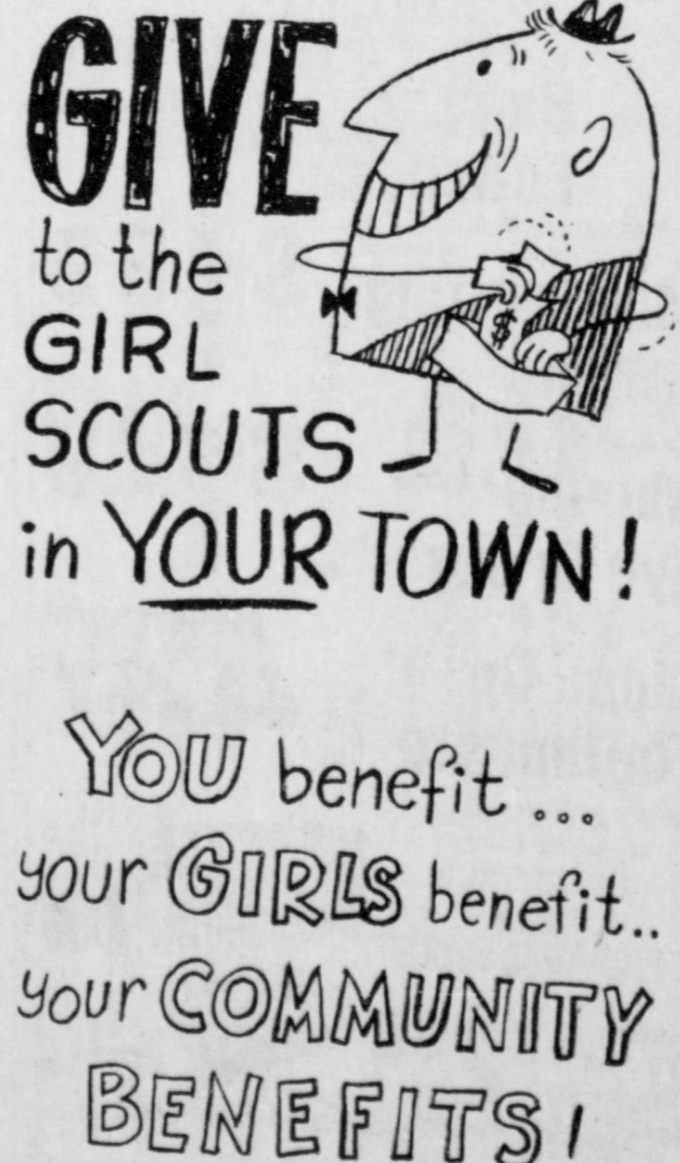 GIVE
to the
GIRL
SCOUTS
in YOUR TOWN!
$
YOU benefit...
your GIRLS benefit..
your COMMUNITY
BENEFITS!